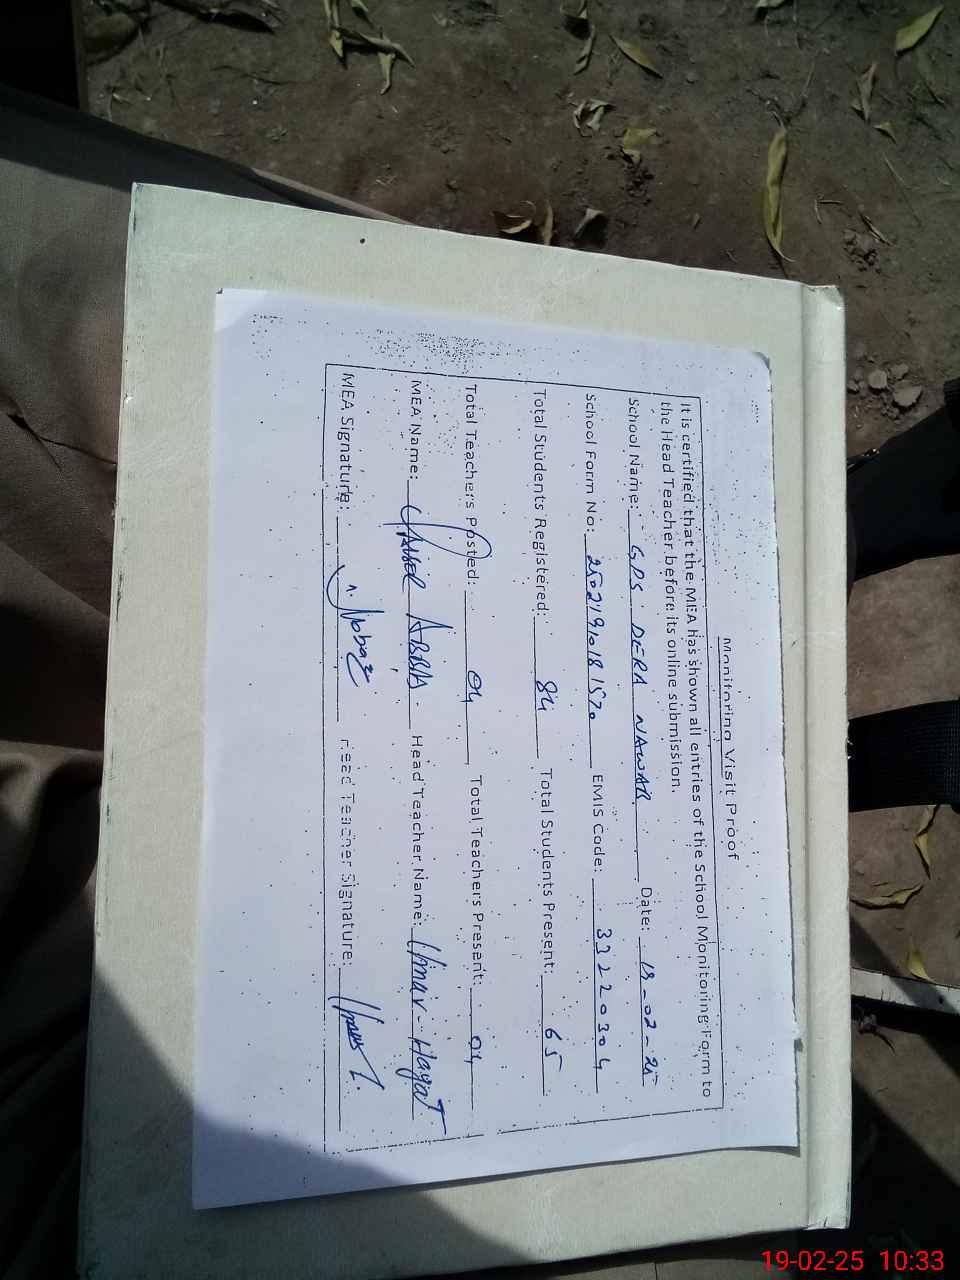 Monitoring Visit Proof
It is certified that the MEA has shown all entries of the School Monitoring Form to
the Head Teacher before its online submission.
School Name: GPS DERA NAWAB Date: 19-02-25
School Form No: EMIS Code: 33220304
Total Students Registered: 84 Total Students Present: 65
Total Teachers Posted: 04 Total Teachers Present: 04
MEA Name: ABBAS Head Teacher Name: Umar-Hayat
MEA Signature: Head Teacher Signature:
19-02-25 10:33